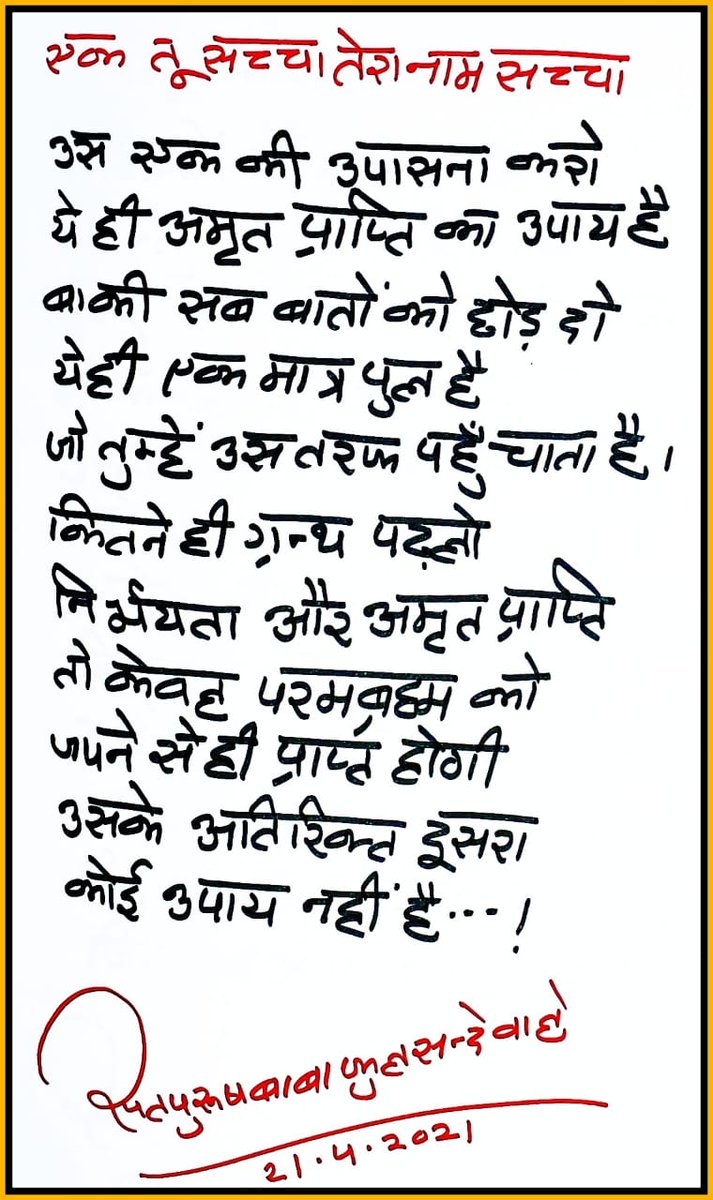 एक तू सच्चा तेरा नाम सच्चा
उस एक की उपासना करो
ये ही अमृत प्राप्ति का उपाय है
बाकी सब बातों को छोड़ दो
येही एक मात्र पुल है
जो तुम्हें उस तरफ पहुँचाता है।
कितने ही ग्रन्थ पढ़लो
निर्भयता और अमृत प्राप्ति
तो केवल परमब्रह्म को
जपने से ही प्राप्त होगी
उसके अतिरिक्त दूसरा
कोई उपाय नहीं है...!
सतपुरूषबाबा फुलसन्देवाले
21.4.2021